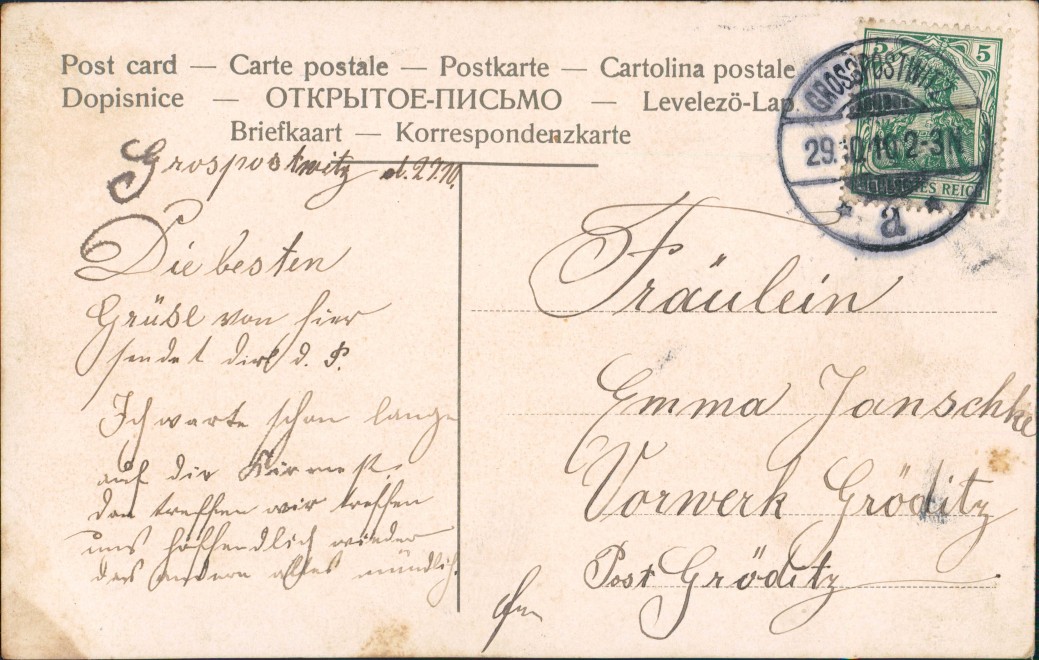 Post card — Carte postale — Postkarte — Cartolina postale
Dopisnice — ОТКРЫТОЕ-ПИСЬМО — Levelezö-Lap.
Briefkaart — Korrespondenzkarte
5
GROSSPOSTWITZ
29.10.10. 2-3N
a
DEUTSCHES REICH
Grospostwitz d. 29.10.
Die besten
Grüse von hier
sendet dir d. P.
Ich warte schon lange
auf die Kirmest,
den treffen wir treffen
uns hoffendlich wieder
das andere alles mündlich.
Fräulein
Emma Janschke
Vorwerk Gröditz
Post Gröditz